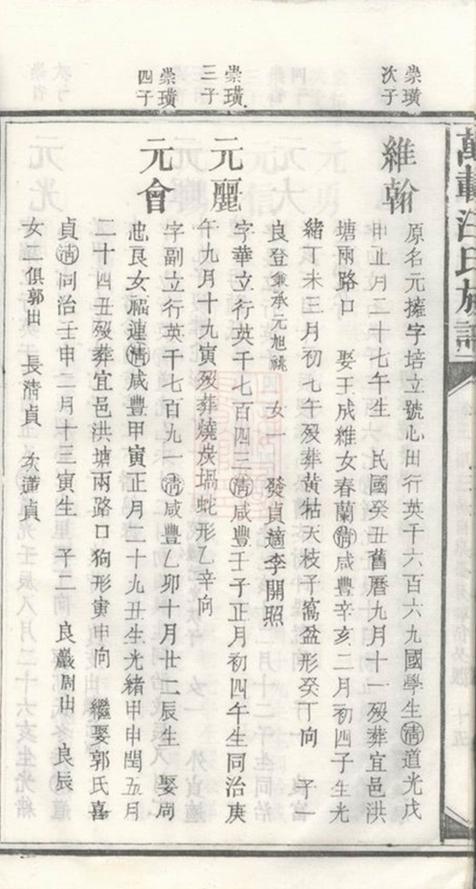 萬載汪氏族譜
崇璜次子
維翰
原名元擁字培立號心田行英千六百六九國學生清道光戊
申正月二十七午生 民國癸丑舊曆九月十一歿葬宜邑洪
塘兩路口 娶王成維女春蘭清咸豐辛亥二月初四子生光
緒丁未三月初七午歿葬黃牯天枝子窩盆形癸丁向 子一
良登兼承元旭祧 女一 發貞適李開照
崇璜三子
元麗
字華立行英千七百四三清咸豐壬子正月初四午生同治庚
午九月十九寅歿葬燒炭塥蛇形乙辛向
崇璜四子
元會
字副立行英千七百九一清咸豐乙卯十月廿二辰生 娶周
忠艮女福連清咸豐甲寅正月二十九丑生光緒甲申閏五月
二十四丑歿葬宜邑洪塘兩路口狗形寅申向 繼娶郭氏喜
貞清同治壬申二月十三寅生 子二 良巖周出 良辰
女二俱郭出 長清貞 次蓮貞